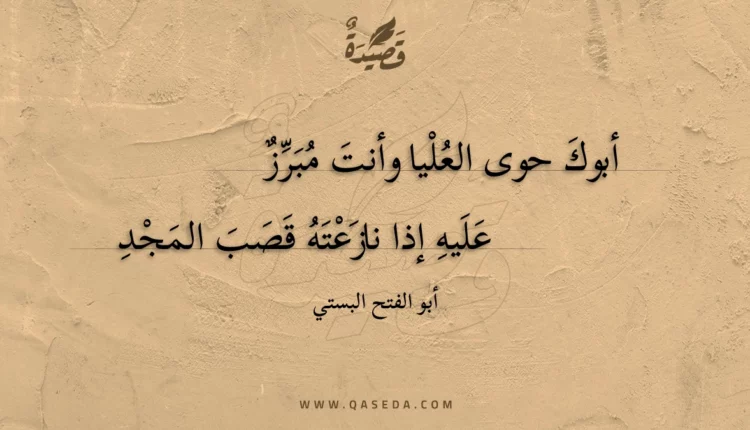 قَصِيْدَةٌ
أبوكَ حوى العُلْيا وأنتَ مُبَرِّزٌ
عَلَيهِ إذا نازَعْتَهُ قَصَبَ المَجْدِ
أبو الفتح البستي
WWW.QASEDA.COM